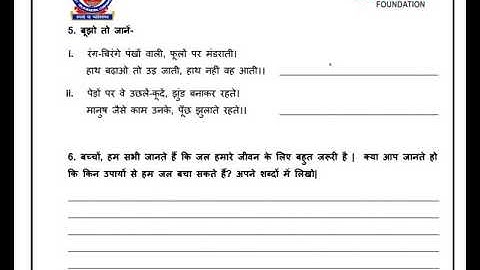 FOUNDATION
5. बूझो तो जानें-
I. रंग-बिरंगे पंखों वाली, फूलो पर मंडराती।
हाथ बढ़ाओ तो उड़ जाती, हाथ नहीं वह आती।।
II. पेडों पर वे उछले-कूदे, झुंड बनाकर रहते।
मानुष जैसे काम उनके, पूँछ झुलाते रहते।।
6. बच्चों, हम सभी जानते हैं कि जल हमारे जीवन के लिए बहुत जरूरी है | क्या आप जानते हो
कि किन उपायों से हम जल बचा सकते हैं? अपने शब्दों में लिखो|